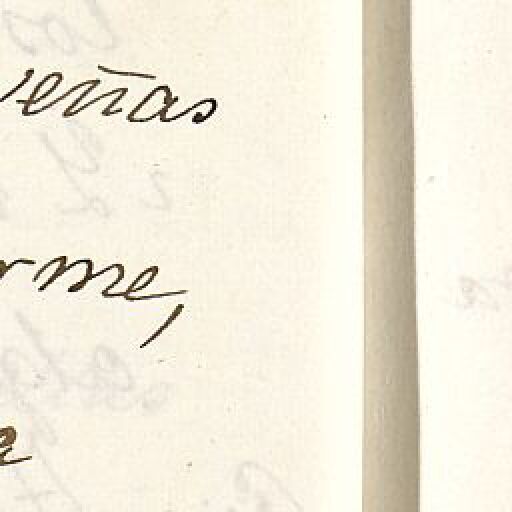 eñas
rme,
a